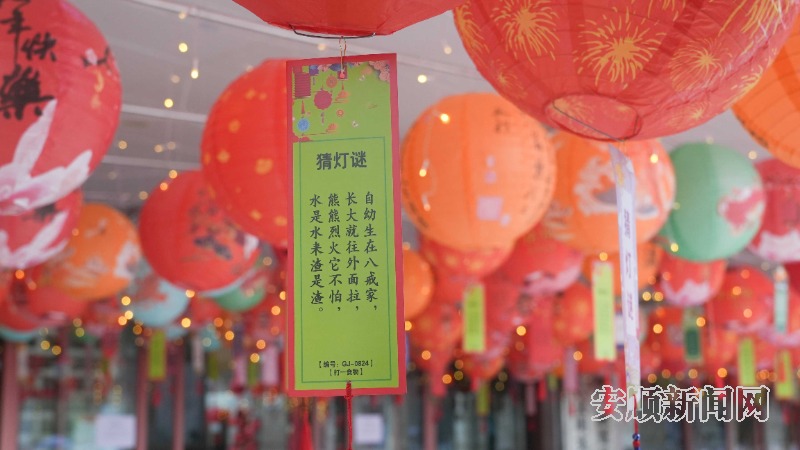 年快乐
猜灯谜
自幼生在八戒家，
长大就往外面拉，
熊熊烈火它不怕，
水是水来渣是渣。
【编号：GJ-0824】
【打一食物】
安顺新闻网